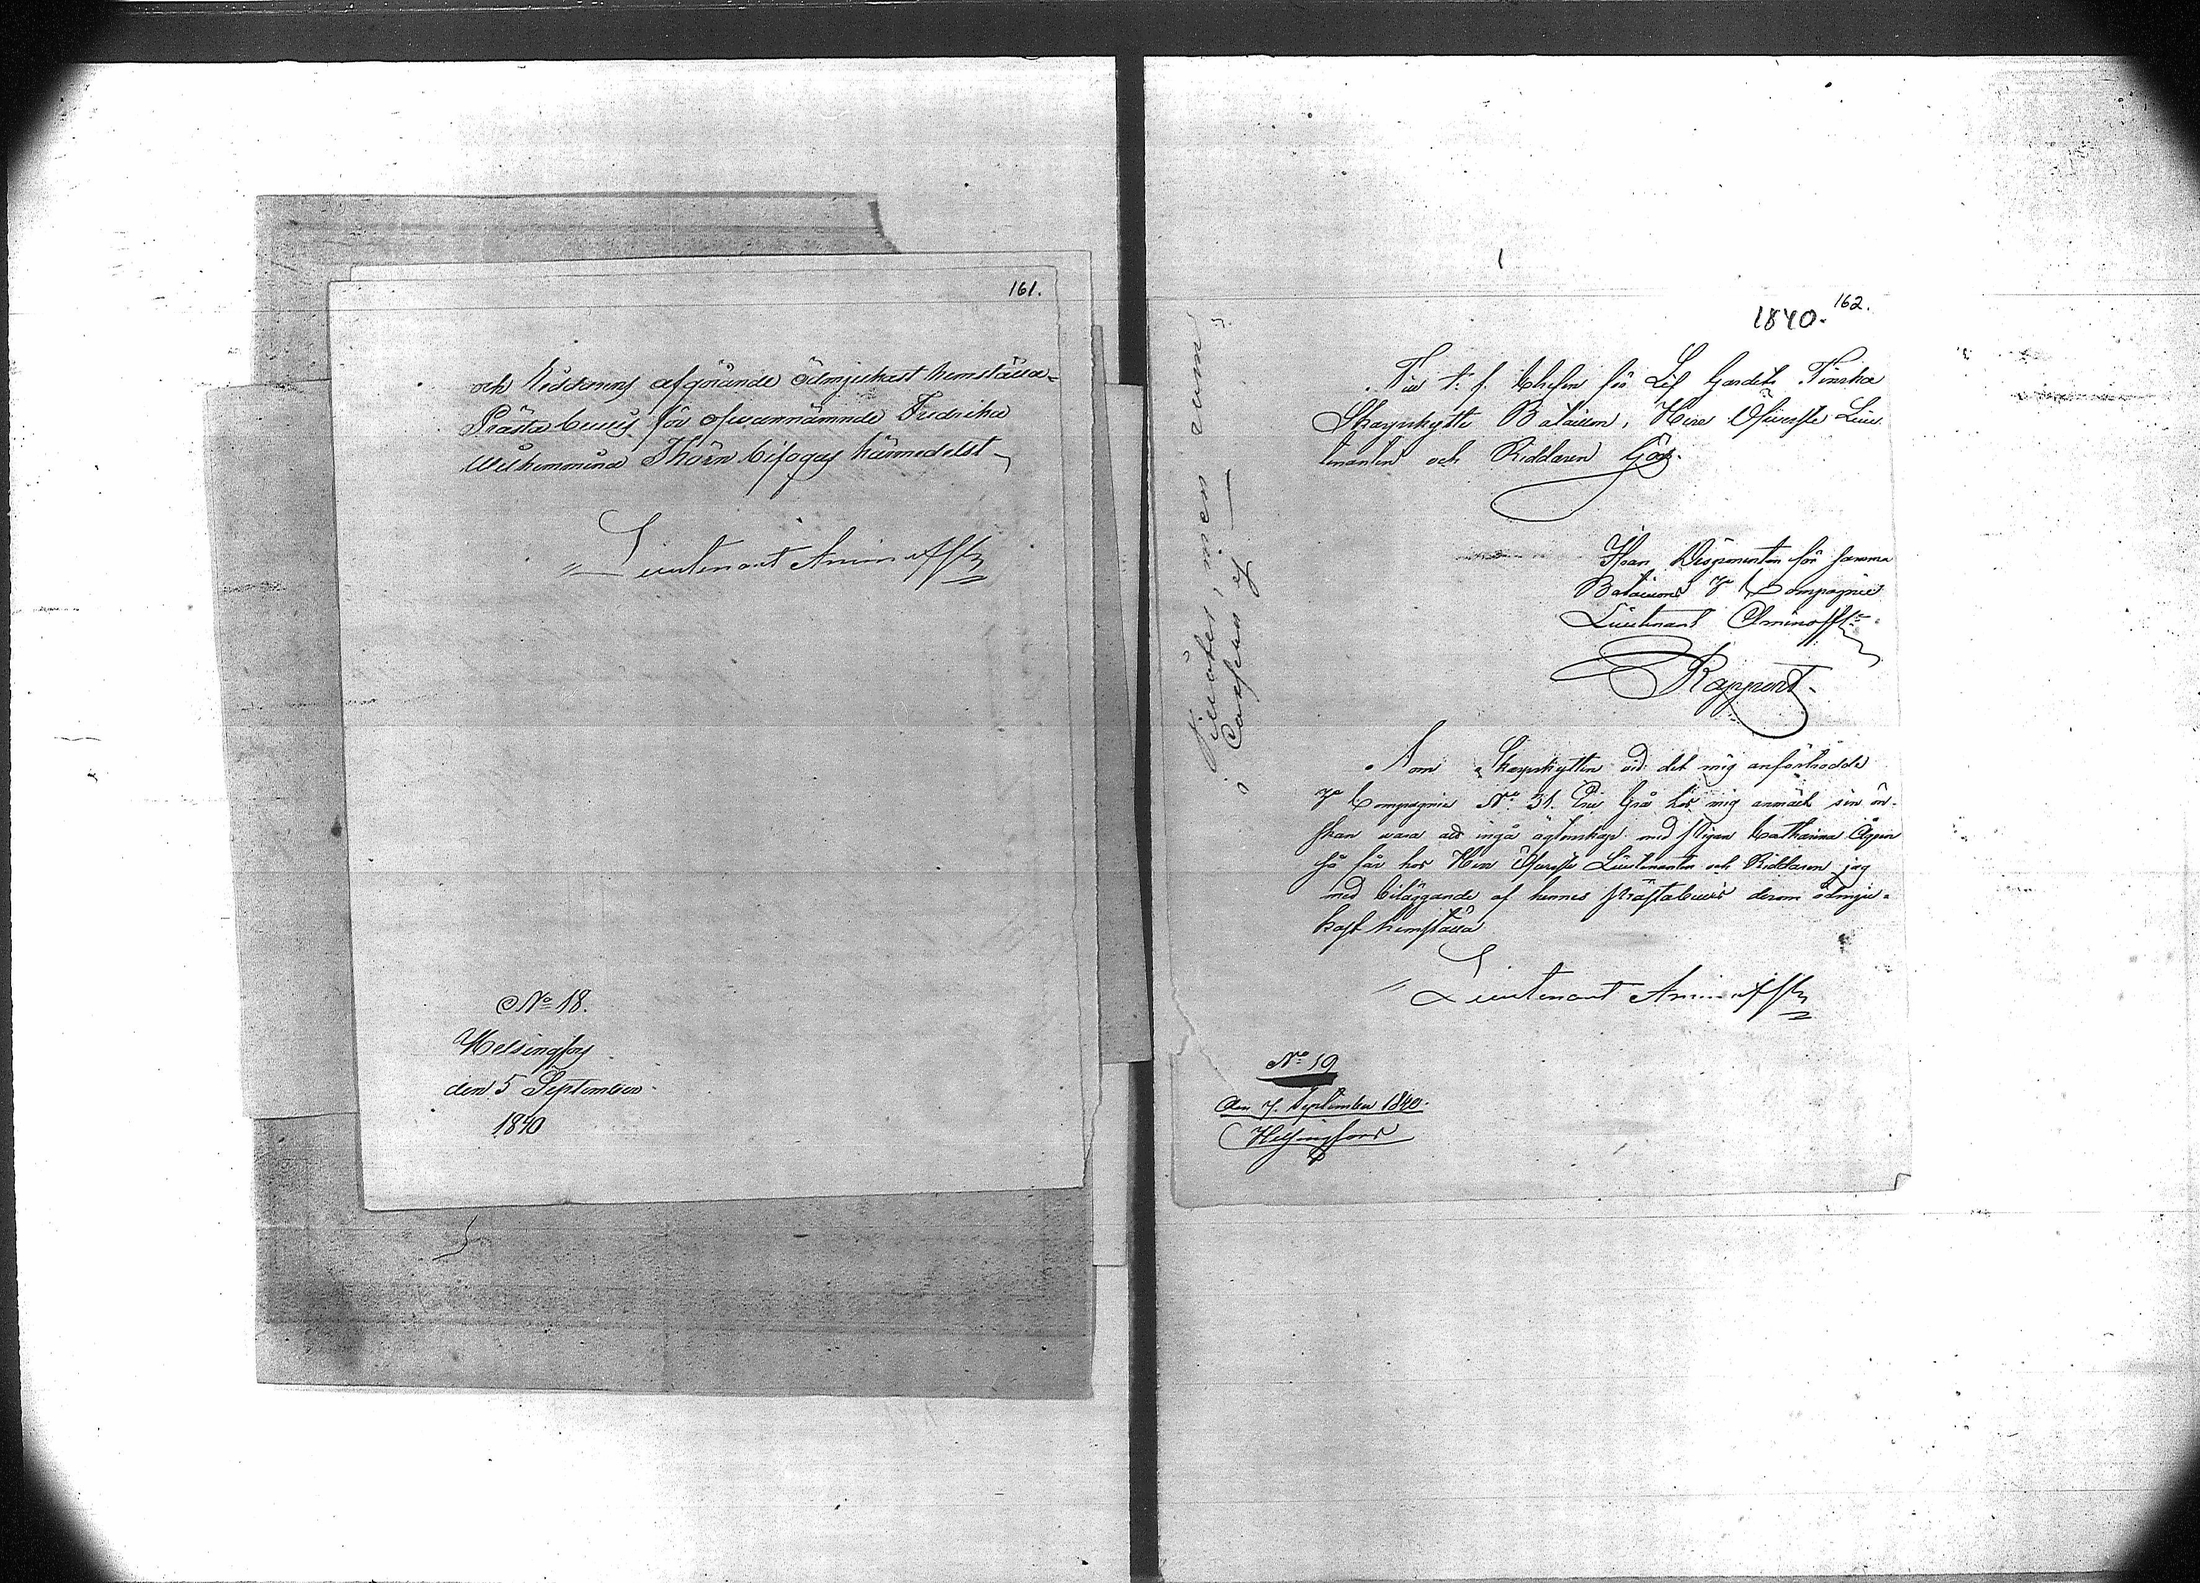 161.
och Riddarens afgörande ödmjukast hemställa.
Prästabevis för ofvannämnde Fredrika
Wilhelmina Thörn bifogas härmedelst
Lieutenant Aminoff
No 18.
Helsingfors
den 5 September
1840
162.
1840.
Till t. f. Chefen för Lif Gardets Finska
Skarpskytte Bataillon, Herr Öfverste Lieu
tenanten och Riddaren
Från Disponenten för samma
Bataillons Compagnie
Lieutenant Aminoff
Rapport.
Som Skarpskytten vid det mig anförtrodde
Compagnie No 31. Eric Grå hos mig anmält sin ön-
skan vara att ingå ägtenskap med Pigan Catharina
så får hos Herr Öfverste Lieutenanten och Riddaren jag
med biläggande af hennes Prästabevis derom ödmju-
kast hemställa
Lieutenant Aminoff
No 19
den 7. September 1840.
Helsingfors
Tillåtes, men
ej